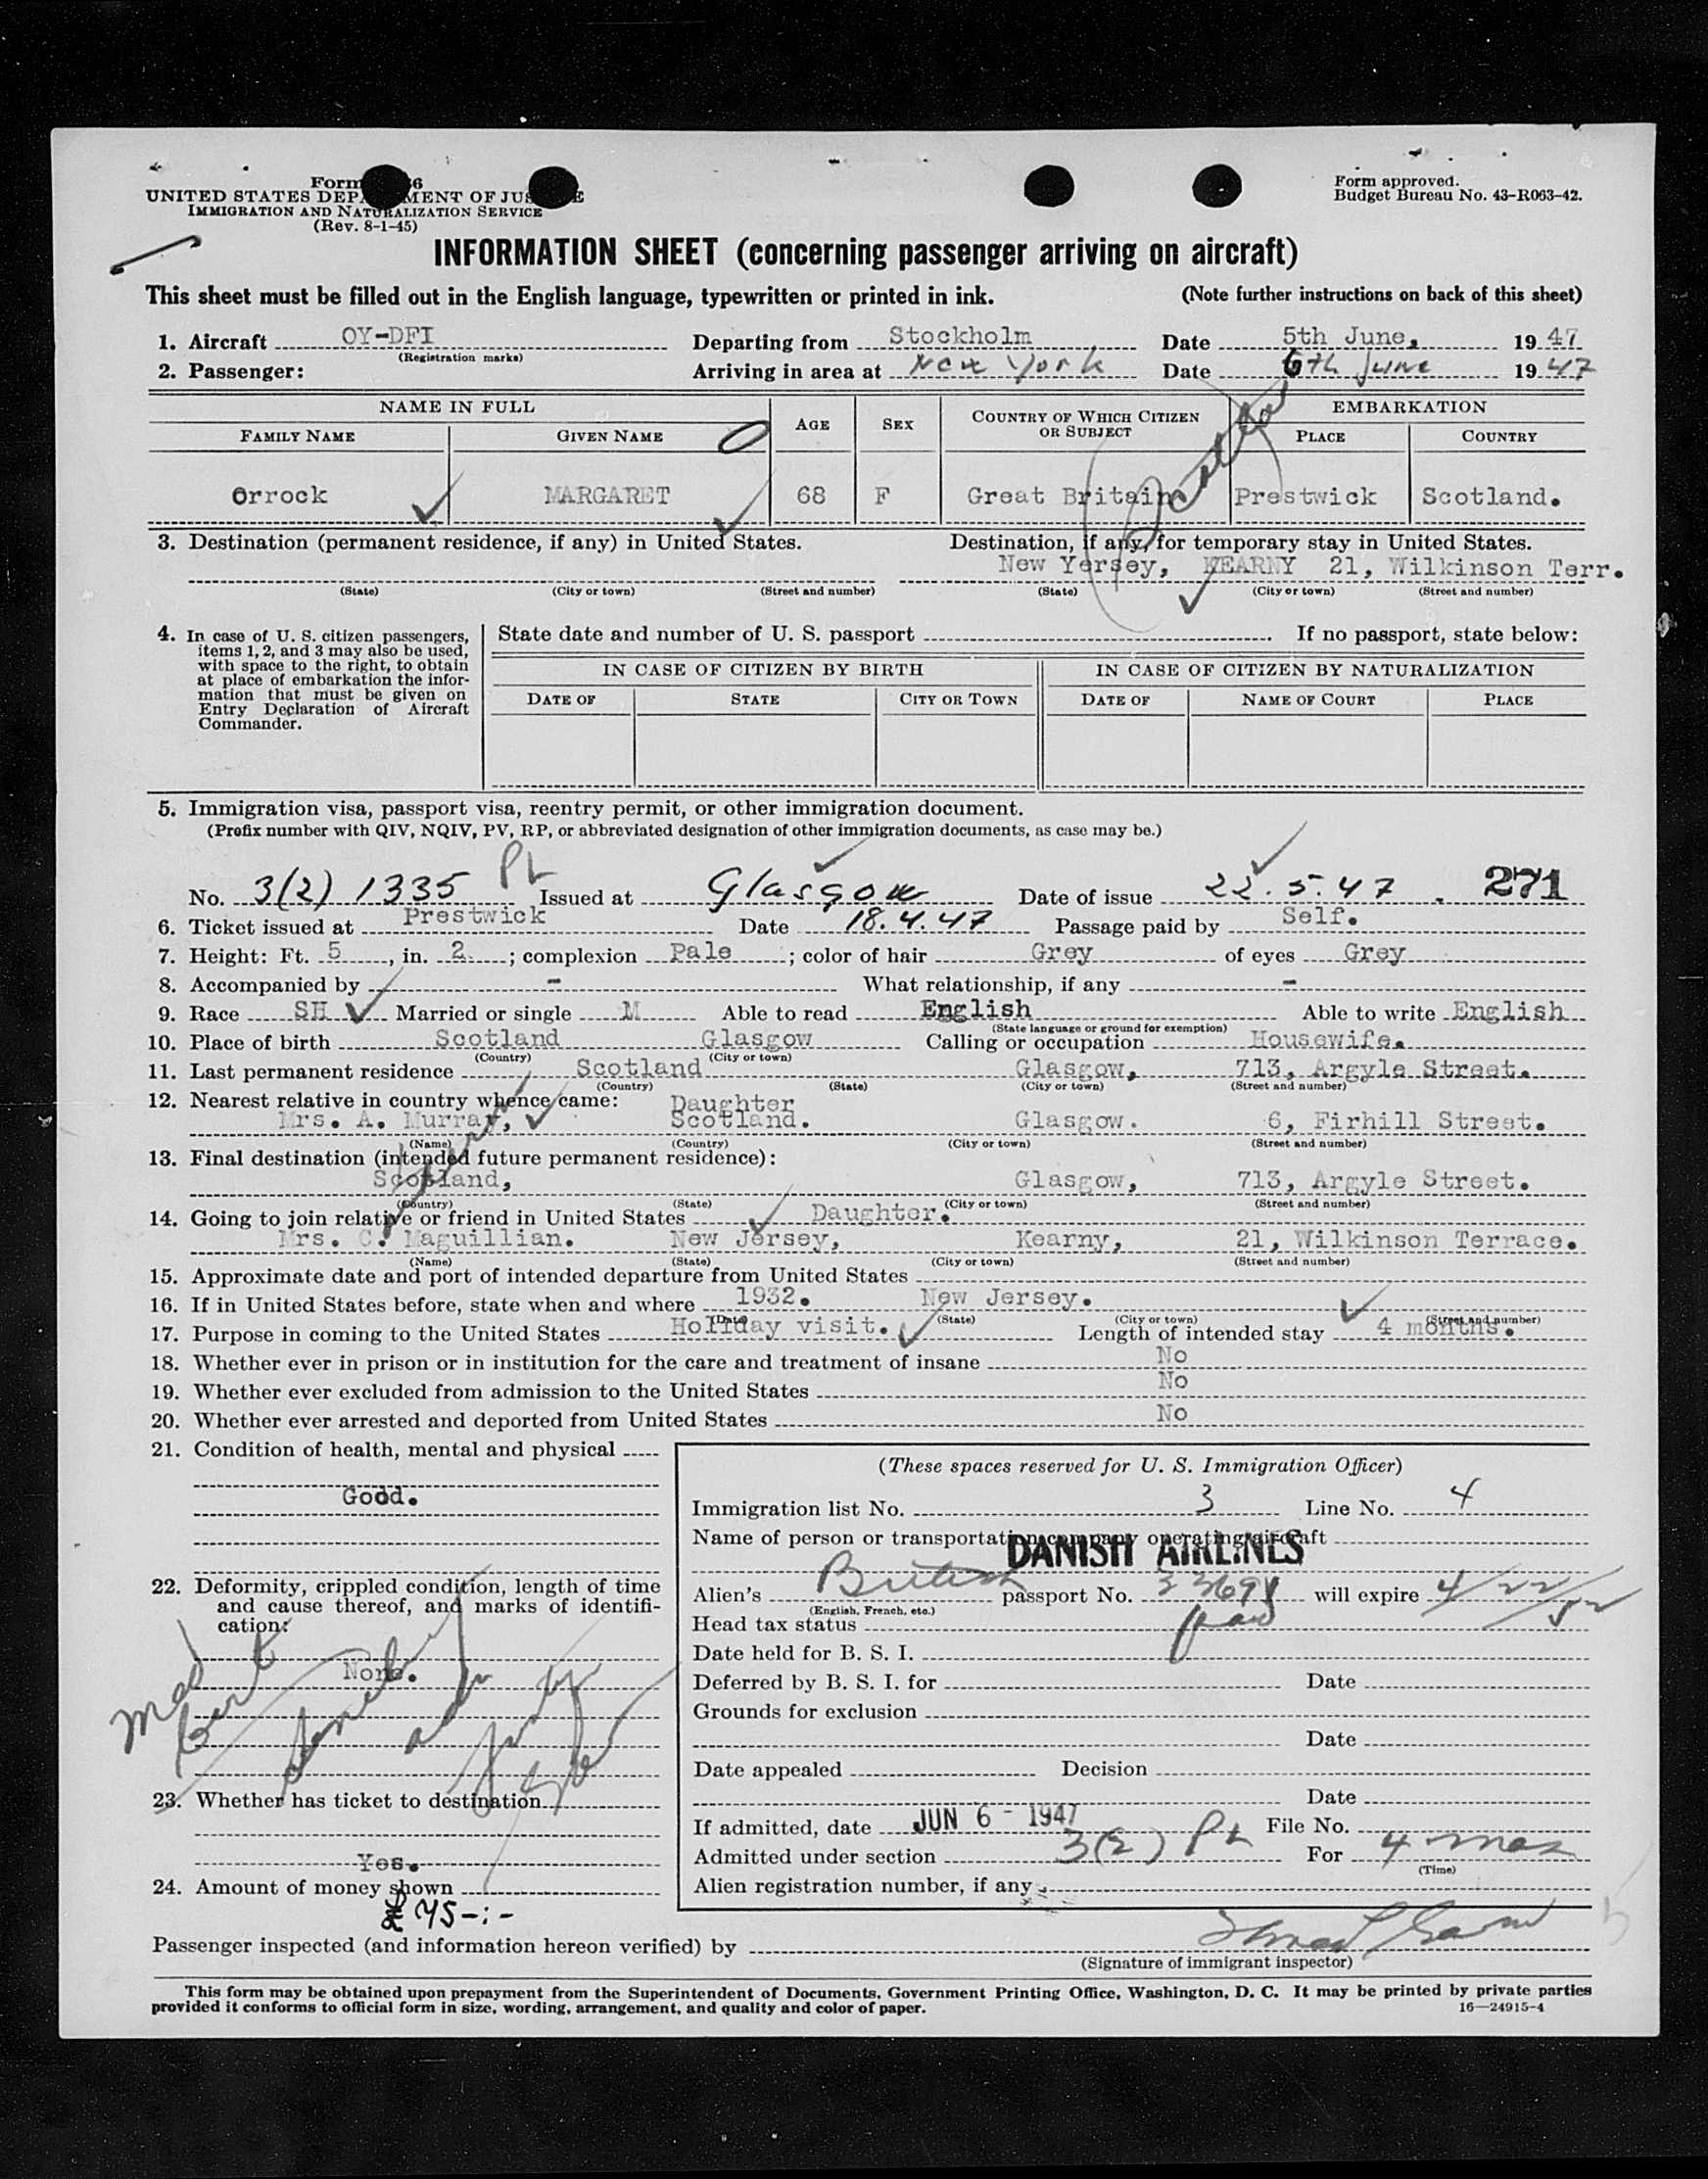 Form 6
UNITED STATES DEP MENT OF JUS E
IMMIGRATION AND NATURALIZATION SERVICE
(Rev. 8-1-45)
Form approved.
Budget Bureau No. 43-R063-42.
INFORMATION SHEET (concerning passenger arriving on aircraft)
This sheet must be filled out in the English language, typewritten or printed in ink. (Note further instructions on back of this sheet)
1. Aircraft OY-DFI Departing from Stockholm Date 5th June, 1947
(Registration marks)
2. Passenger: Arriving in area at New York Date 6th June 1947
NAME IN FULL AGE SEX COUNTRY OF WHICH CITIZEN OR SUBJECT EMBARKATION
FAMILY NAME GIVEN NAME PLACE COUNTRY
Orrock MARGARET 68 F Great Britain Prestwick Scotland.
3. Destination (permanent residence, if any) in United States. Destination, if any, for temporary stay in United States.
New Yersey, KEARNY 21, Wilkinson Terr.
(State) (City or town) (Street and number) (State) (City or town) (Street and number)
4. In case of U. S. citizen passengers,
items 1, 2, and 3 may also be used,
with space to the right, to obtain
at place of embarkation the infor-
mation that must be given on
Entry Declaration of Aircraft
Commander.
State date and number of U. S. passport . If no passport, state below:
IN CASE OF CITIZEN BY BIRTH IN CASE OF CITIZEN BY NATURALIZATION
DATE OF STATE CITY OR TOWN DATE OF NAME OF COURT PLACE
5. Immigration visa, passport visa, reentry permit, or other immigration document.
(Prefix number with QIV, NQIV, PV, RP, or abbreviated designation of other immigration documents, as case may be.)
No. 3(2) 1335 PL Issued at Glasgow Date of issue 22.5.47. 271
6. Ticket issued at Prestwick Date 18.4.47 Passage paid by Self.
7. Height: Ft. 5, in. 2; complexion Pale; color of hair Grey of eyes Grey
8. Accompanied by - What relationship, if any -
9. Race SH Married or single M Able to read English Able to write English
(State language or ground for exemption)
10. Place of birth Scotland Glasgow Calling or occupation Housewife.
(Country) (City or town)
11. Last permanent residence Scotland Glasgow, 713, Argyle Street.
(Country) (State) (City or town) (Street and number)
12. Nearest relative in country whence came: Daughter
Mrs. A. Murray, Scotland. Glasgow. 6, Firhill Street.
(Name) (Country) (City or town) (Street and number)
13. Final destination (intended future permanent residence):
Scotland, Glasgow, 713, Argyle Street.
(Country) (State) (City or town) (Street and number)
14. Going to join relative or friend in United States Daughter.
Mrs. C. Maguillian. New Jersey, Kearny, 21, Wilkinson Terrace.
(Name) (State) (City or town) (Street and number)
15. Approximate date and port of intended departure from United States
16. If in United States before, state when and where 1932. New Jersey.
(Date) (State) (City or town) (Street and number)
17. Purpose in coming to the United States Holiday visit. Length of intended stay 4 months.
18. Whether ever in prison or in institution for the care and treatment of insane No
19. Whether ever excluded from admission to the United States No
20. Whether ever arrested and deported from United States No
21. Condition of health, mental and physical
Good.
22. Deformity, crippled condition, length of time
and cause thereof, and marks of identifi-
cation:
None.
Med Cert
23. Whether has ticket to destination
Yes.
24. Amount of money shown
£ 75-:-
(These spaces reserved for U. S. Immigration Officer)
Immigration list No. 3 Line No. 4
Name of person or transportation company operating aircraft
DANISH AIRLINES
Alien's British passport No. will expire 4/22/52
(English, French, etc.)
Head tax status paid
Date held for B. S. I.
Deferred by B. S. I. for Date
Grounds for exclusion
Date
Date appealed Decision
Date
If admitted, date JUN 6 - 1947 File No.
Admitted under section 3(2) PL For 4 mos
(Time)
Alien registration number, if any
Passenger inspected (and information hereon verified) by
(Signature of immigrant inspector)
This form may be obtained upon prepayment from the Superintendent of Documents, Government Printing Office, Washington, D. C. It may be printed by private parties
provided it conforms to official form in size, wording, arrangement, and quality and color of paper. 16—24915-4